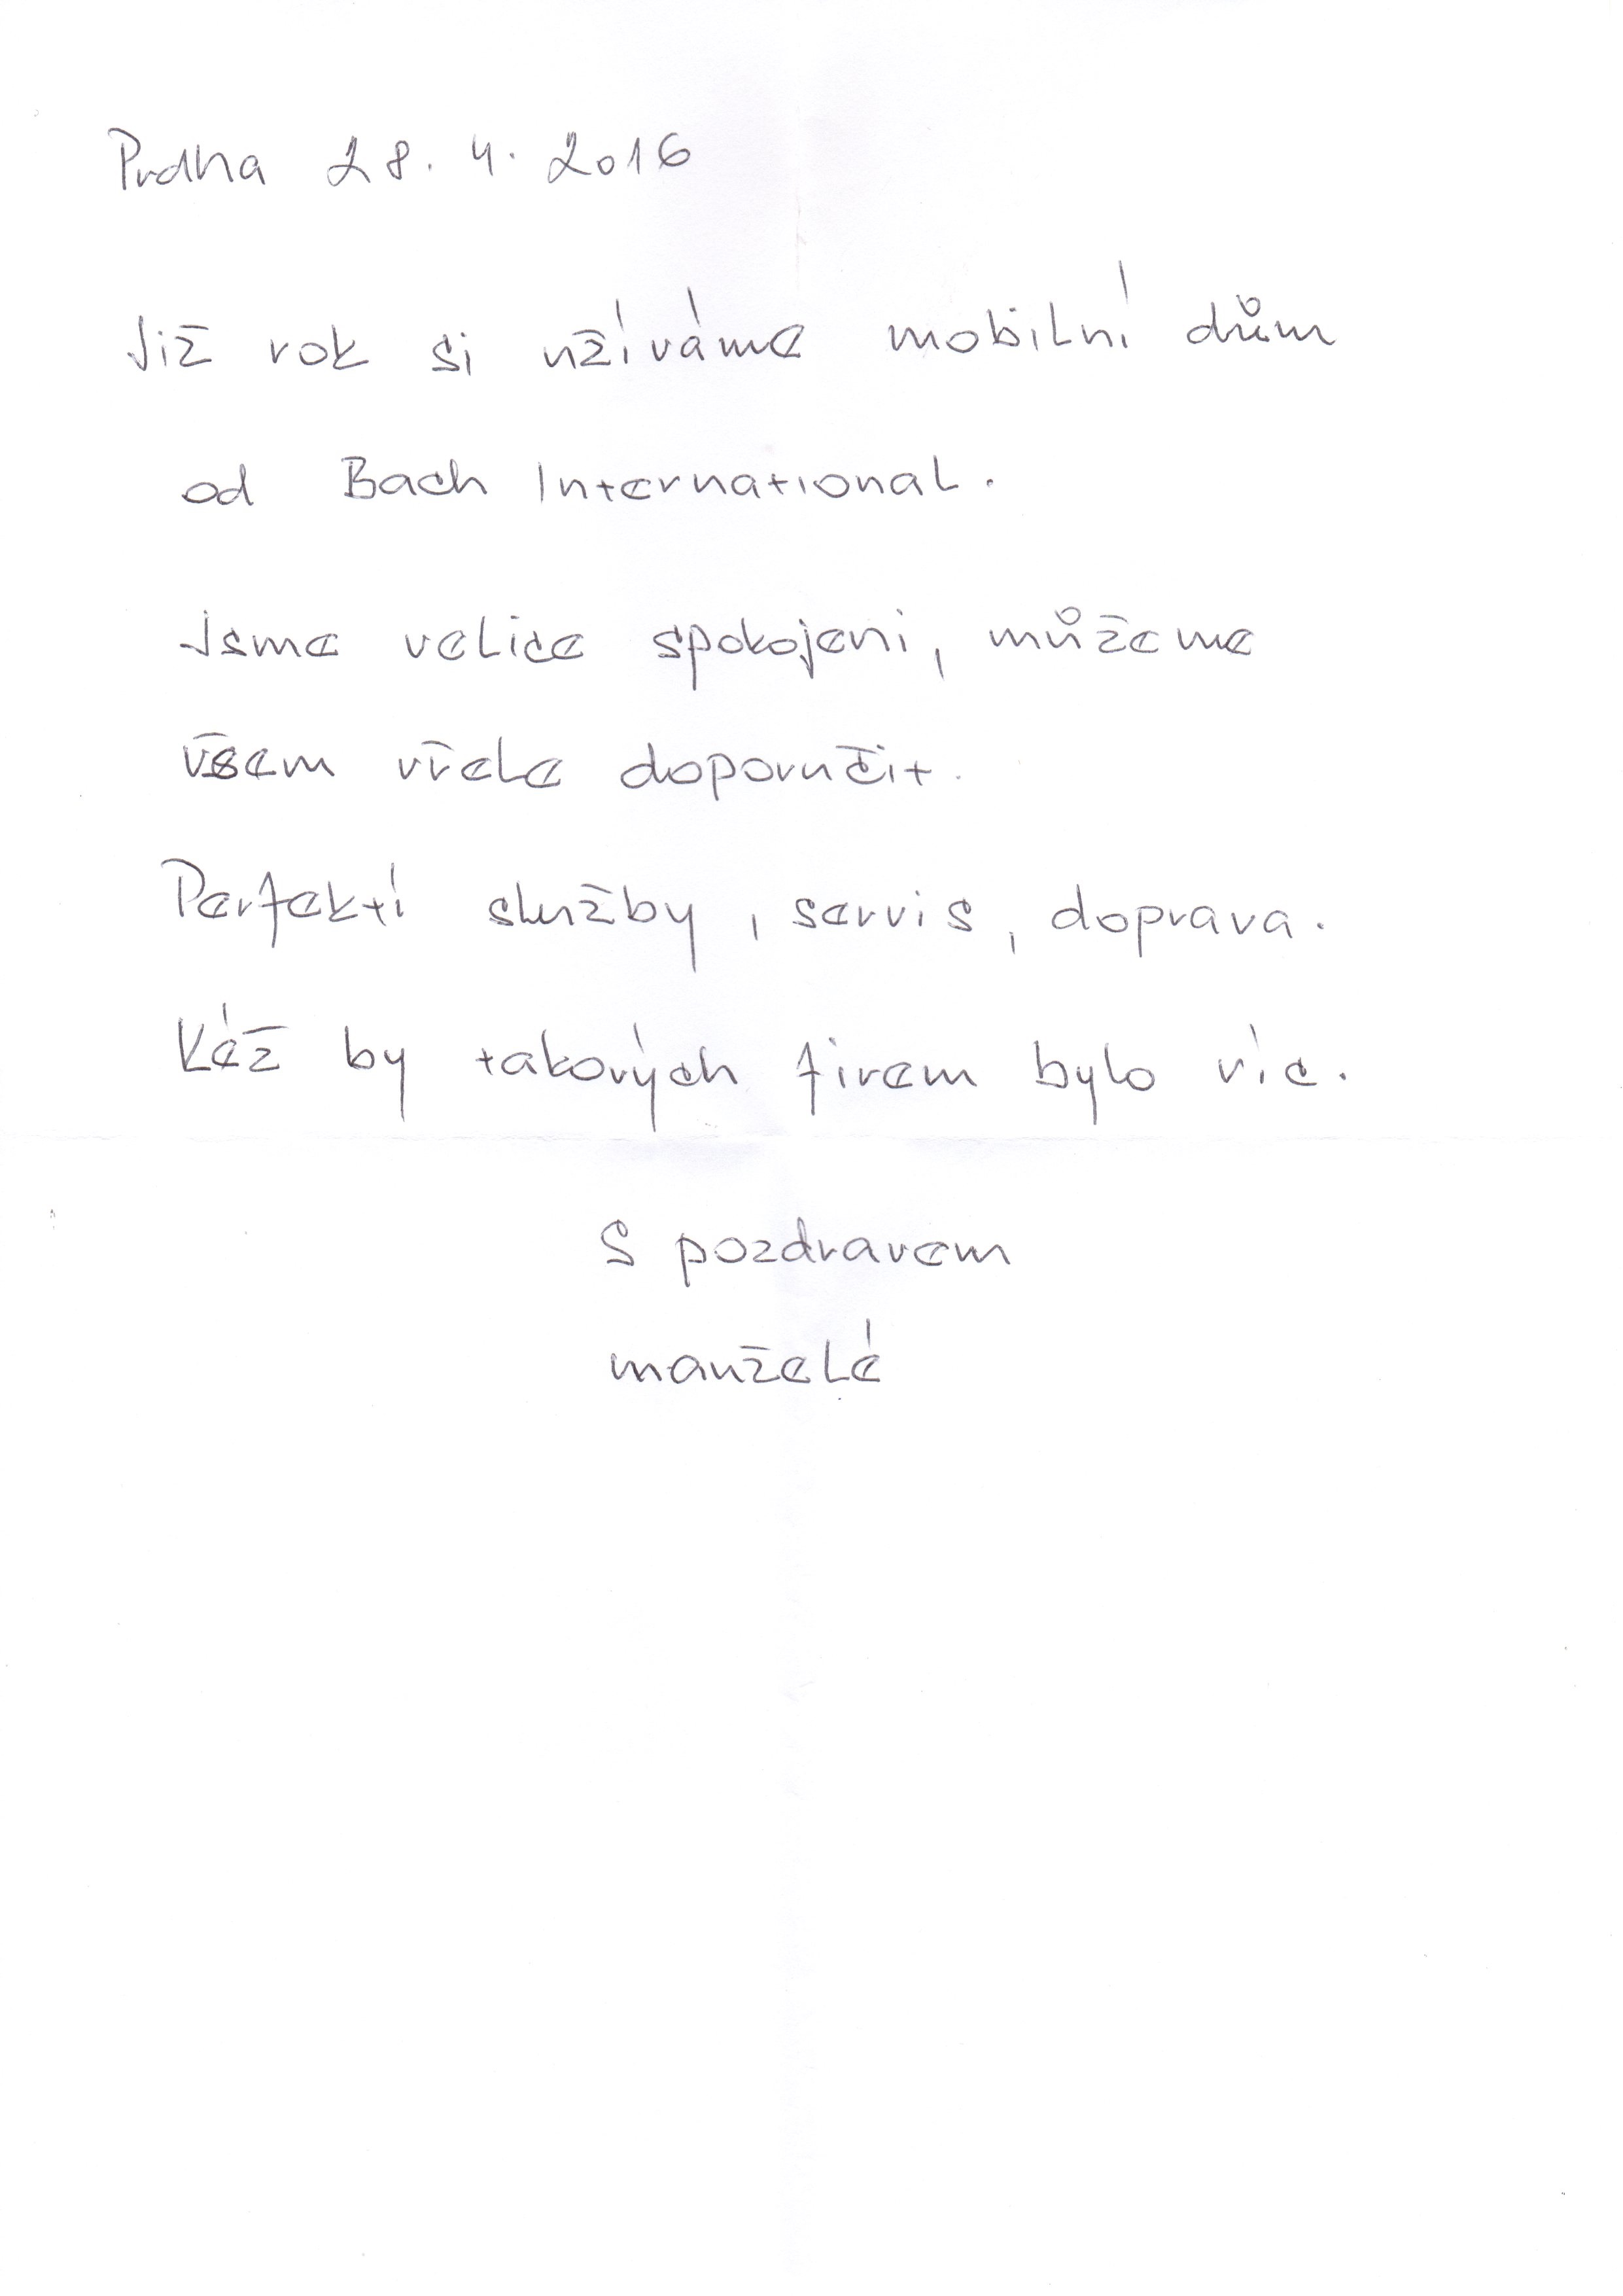 Praha 28. 4. 2016
Již rok si užíváme mobilní dům
od Bach International.
Jsme velice spokojeni, můžeme
všem vřele doporučit.
Perfektí služby, servis, doprava.
Kéž by takových firem bylo víc.
S pozdravem
manželé